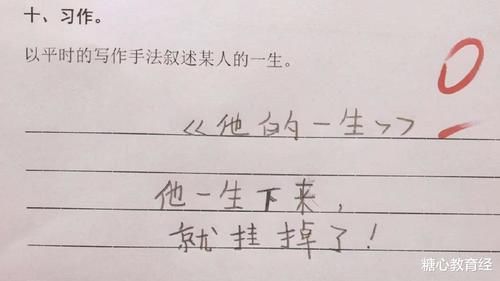 十、习作。
以平时的写作手法叙述某人的一生。
0
《他的一生》
他一生下来，
就挂掉了！
糖心教育经